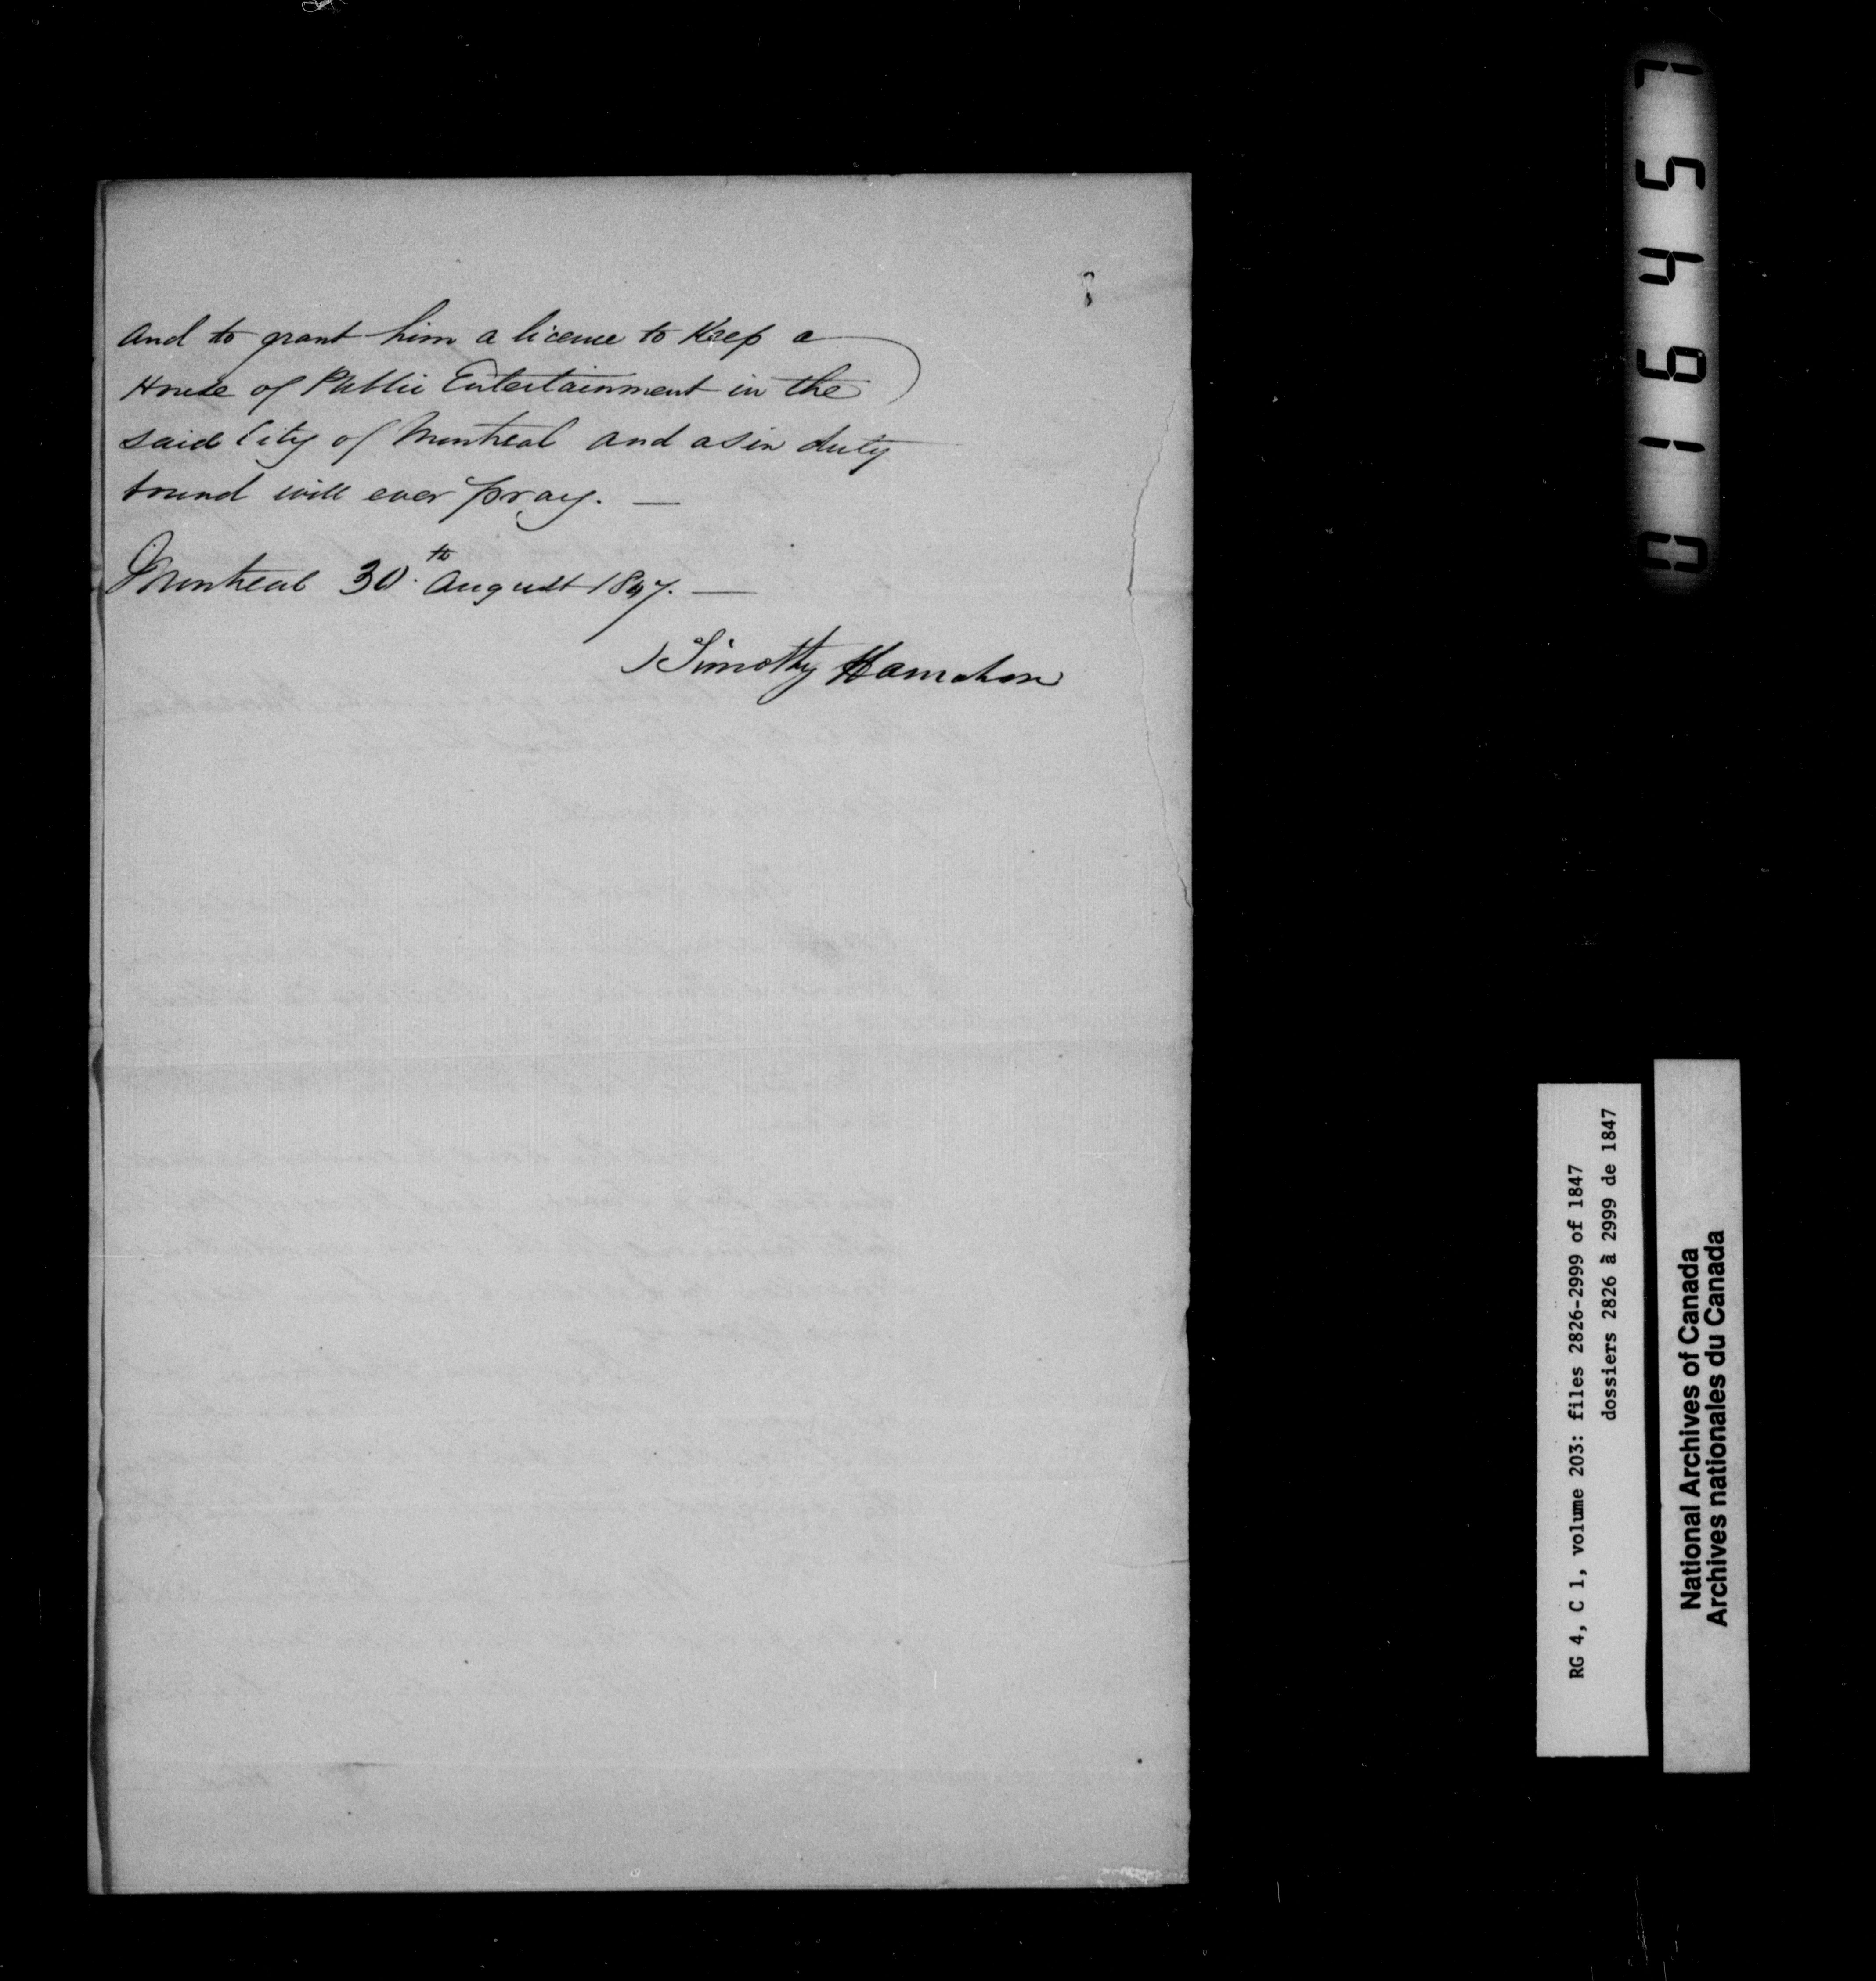 and to grant him a licence to Keep a
House of Public Entertainment in the
said City of Montreal and as in duty
bound will ever pray. —
Montreal 30th August 1847. —
Timothy Hanrahan
016457
RG 4, C 1, volume 203: files 2826-2999 of 1847
dossiers 2826 à 2999 de 1847
National Archives of Canada
Archives nationales du Canada